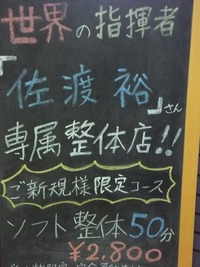 世界の指揮者
「佐渡 裕」さん
専属整体店!!
ご新規様限定コース
ソフト整体50分
¥2,800